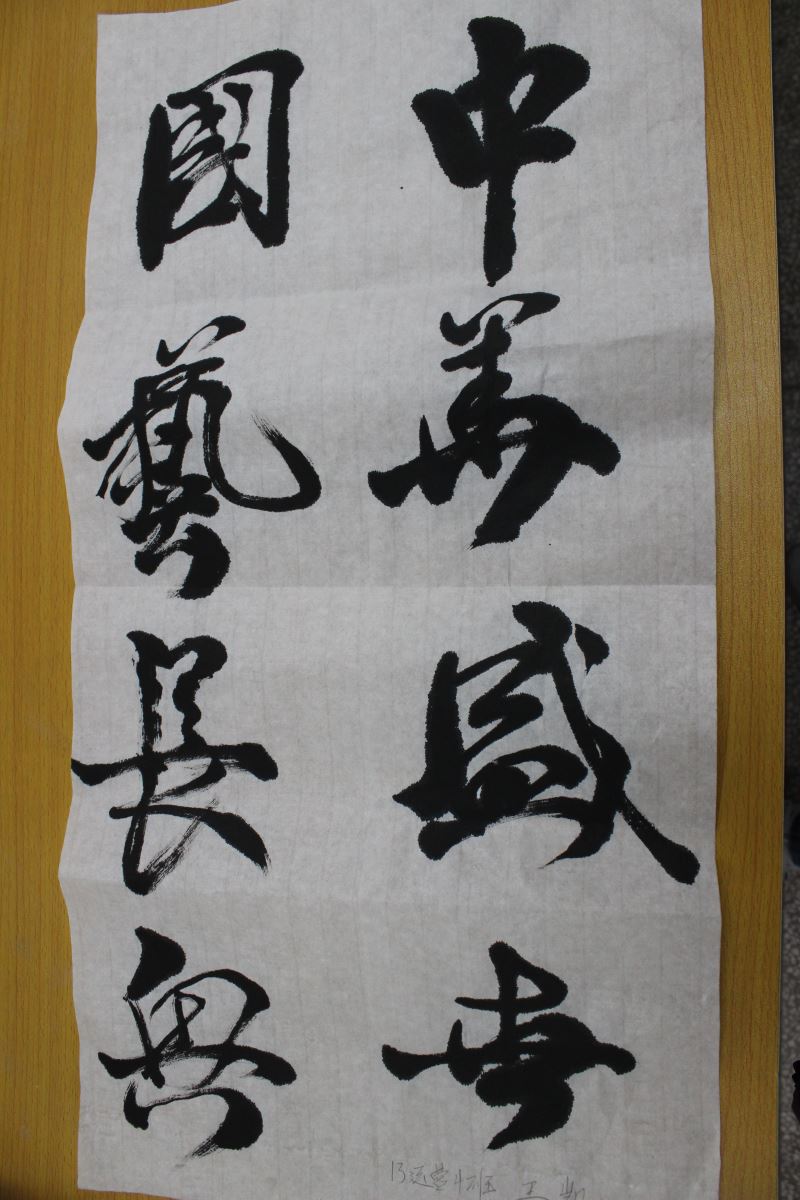 中華盛世
國藝長興